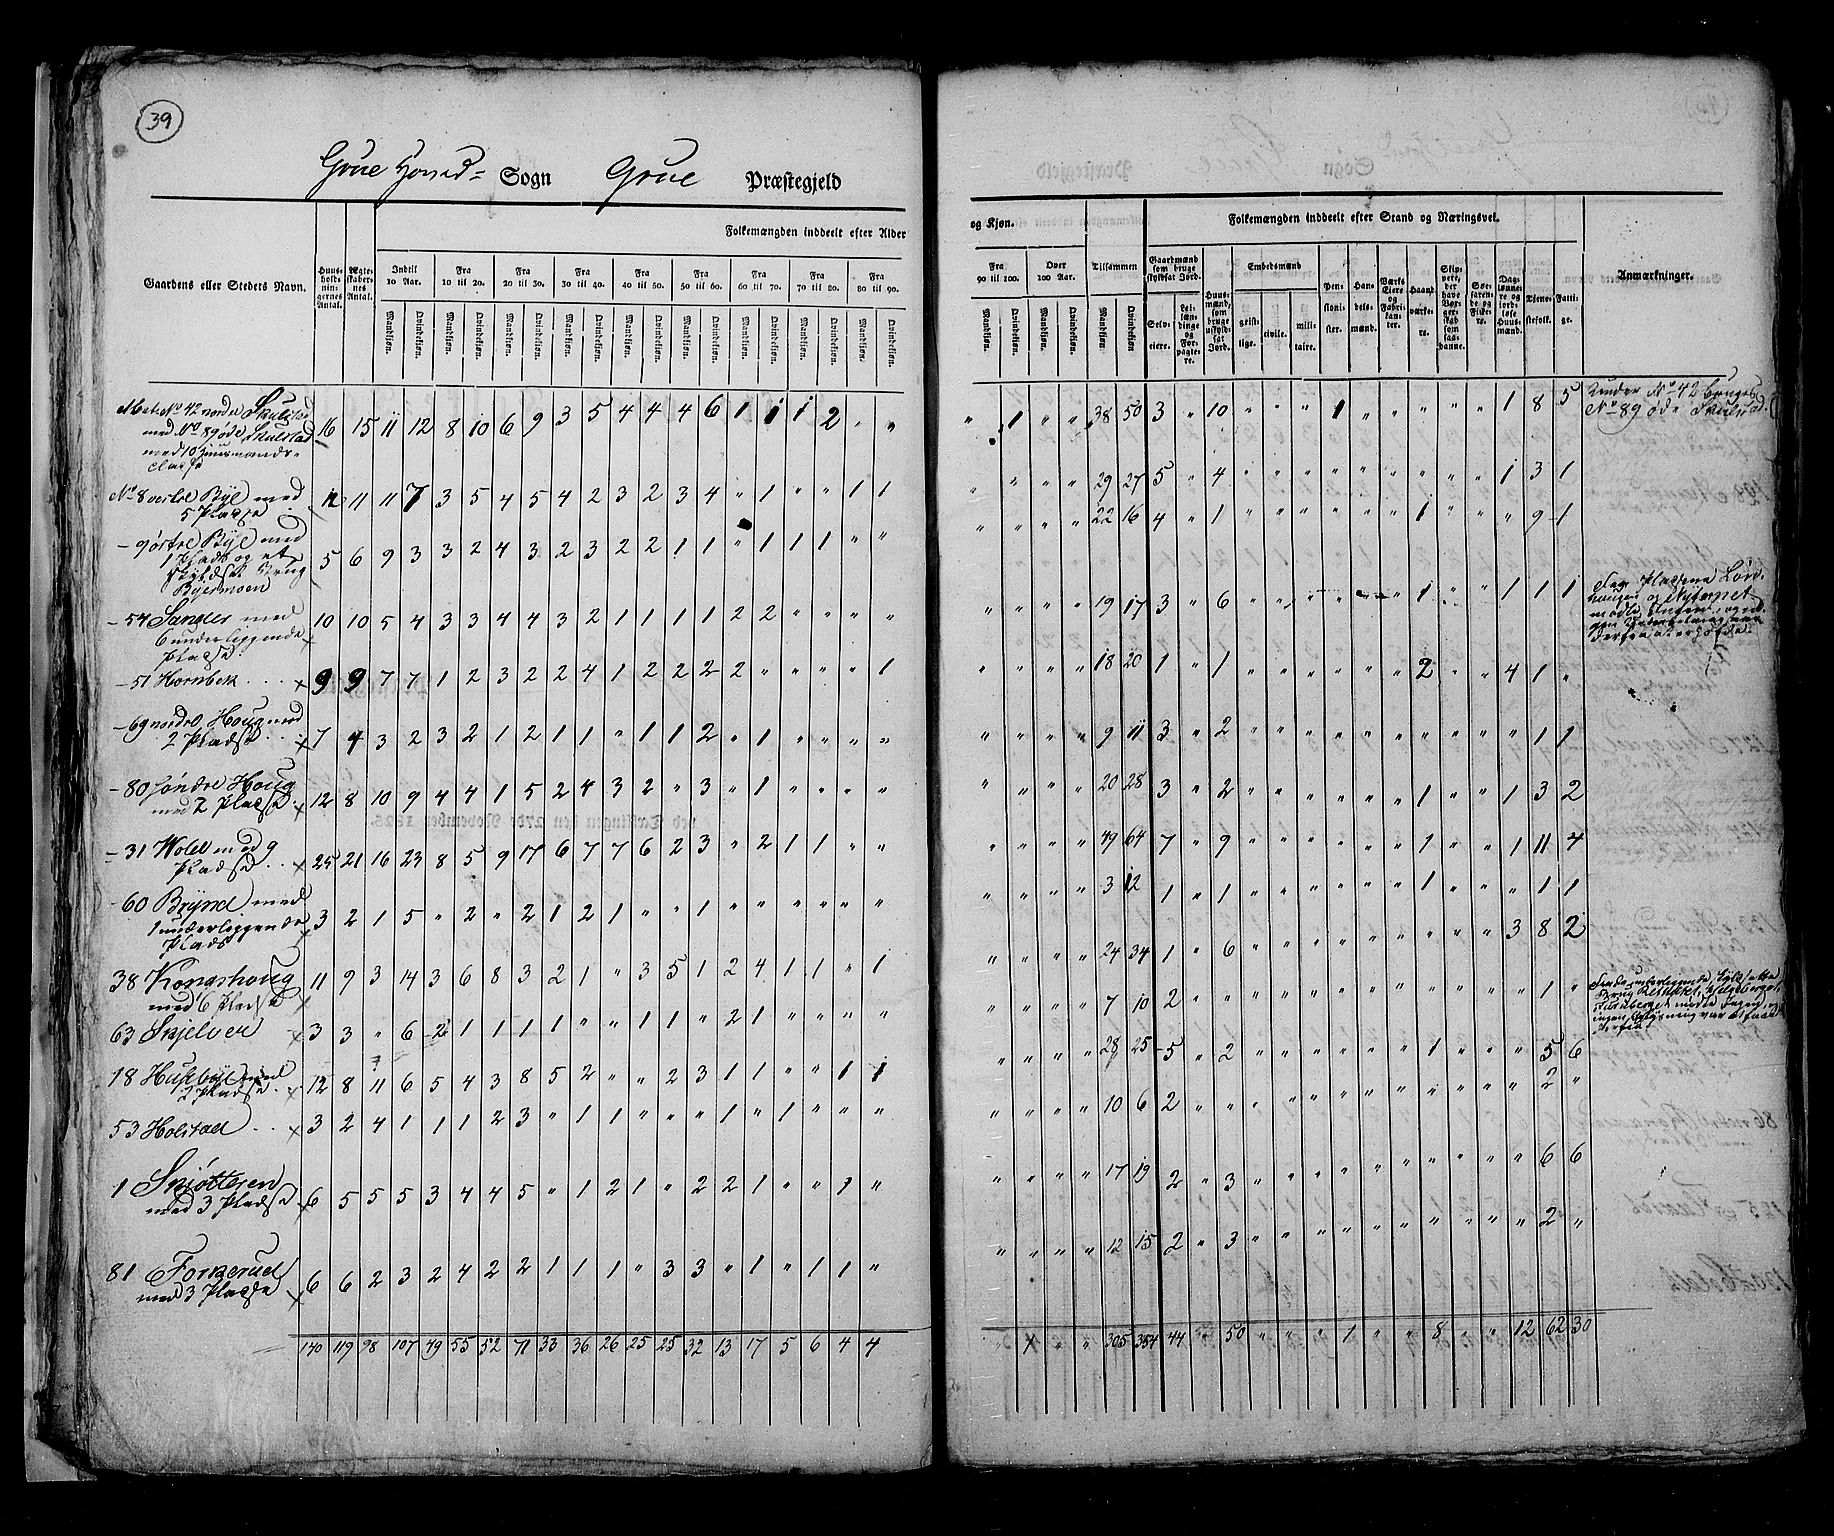 39
Grue Hoved= Sogn Grue Præstegjeld
Gaardens eller Steders Navn. Huusholdningernes Antal. Ægteskabernes Antal. Folkemængden inddeelt efter Alder
Indtil 10 Aar. Fra 10 til 20. Fra 20 til 30. Fra 30 til 40. Fra 40 til 50. Fra 50 til 60. Fra 60 til 70. Fra 70 til 80. Fra 80 til 90.
Mandkiøn. Qvindekiøn. Mandkiøn. Qvindekiøn. Mandkiøn. Qvindekiøn. Mandkiøn. Qvindekiøn. Mandkiøn. Qvindekiøn. Mandkiøn. Qvindekiøn. Mandkiøn. Qvindekiøn. Mandkiøn. Qvindekiøn. Mandkiøn. Qvindekiøn.
Mat: No 42 nordre Skulstad
med No 89 øde Skulstad 16 15 11 12 8 10 6 9 3 5 4 4 4 6 1 1 1 2 " "
med 10 Huusmands=
pladse
No 8 vestre Bye med 12 11 11 7 3 5 4 5 4 2 3 2 3 4 " 1 " " 1 1
5 Pladse
– 9 østre Bye med
1 Plads og et 5 6 9 3 3 2 4 3 2 3 2 2 1 1 " 1 1 1 " "
Skyldsat Brug
Byermoen
– 54 Sander med 10 10 5 4 3 3 4 4 3 2 1 1 1 1 2 2 " " " "
6 underliggende
Pladse
– 51 Hornbek 9 9 7 7 1 2 3 2 2 4 1 2 2 2 2 " " " " 1
– 69 nordre Houg med
2 Pladse 7 4 3 2 3 2 1 2 1 1 " 1 1 2 " 1 " " " "
– 80 søndre Houg
med 2 Pladse 12 8 10 9 4 4 1 5 2 4 3 2 " 3 " 1 " " " "
– 31 Wold med 9
Pladse 25 21 16 23 8 5 9 17 6 7 7 6 2 3 " 2 1 1 " "
– 60 Brynd med
1 underliggende 3 2 1 5 " 2 " 2 1 2 1 " " 1 " " " " " "
Plads
38 Kongshoug 11 9 3 14 3 6 8 3 2 1 " 3 5 1 2 4 1 1 " 1
med 6 Pladse
63 Skjelver 3 3 " 6 2 1 1 1 1 " " 1 1 " 2 1 " " " "
18 Husebye med
2 Pladse 12 8 11 6 5 4 3 8 5 2 " " 2 3 1 1 " " 1 1
53 Holstad 3 2 4 1 1 1 2 3 " 1 1 " " " 1 " 1 " " "
1 Skiøttesen
med 3 Pladse 6 5 5 5 3 4 4 5 " 1 2 1 " 2 2 1 " " 1 "
81 Forkerud
med 3 Pladse 6 6 2 3 2 4 2 2 1 1 1 " 3 3 " 1 " 1 1 "
140 119 98 107 49 55 52 71 33 36 26 25 25 32 13 17 5 6 4 4
og Kjøn. Folkemængden inddeelt efter Stand og Næringsvei.
Fra 90 til 100. Over 100 Aar. Tilsammen Gaardmænd som bruge skyldsat Jord. Huusmænd, som bruge uskyldsat Jord. Embedsmænd Pensionister. Handelsmænd. Værks Eiere og Fabrikanter. Haandværkere. Skippere, der have Borgerskab som saadanne. Søefarende og Fiskere. Daglønnere og jordløse Huusmænd. Tjenestefolk. Fattige. Anmærkninger.
Mandkiøn. Qvindekiøn. Mandkiøn. Qvindekiøn. Mandkiøn Qvindekiøn Selveiere. Leilændinge og Forpagtere. geistlige. civile. militaire.
" 1 " " 38 50 3 " 10 " " " 1 " " " " " 1 8 5 Under No 42 bruges
No 89 øde Skulstad.
" " " " 29 27 5 " 4 " " " " " " " " " 1 3 1
" " " " 22 16 4 " 1 " " " " " " 1 " " " 9 1
" " " " 19 17 3 " 6 " " " " " " 1 " " 1 1 1
" " " " 18 20 1 " 1 " " " " " " 2 " " 4 1 "
" " " " 9 11 3 " 2 " " " " " " " " " " 1 1
" " " " 20 28 3 " 2 " " " " " " 1 " " 1 3 2
" " " " 49 64 7 " 9 " " " " " " 1 " " 1 11 4
" " " " 3 12 1 " 1 " " " " " " 1 " " " 1 1
" " " " 24 34 1 " 6 " " " " " " " " " 3 8 2
" " " " 7 10 2 " " " " " " " " " " " " 1 "
" " " " 28 25 5 " 2 " " " " " " 1 " " " 5 6
" " " " 10 6 2 " " " " " " " " " " " " 2 "
" " " " 17 19 2 " 3 " " " " " " " " " " 6 6
" " " " 12 15 2 " 3 " " " " " " " " " " 2 "
" 1 " " 305 354 44 " 50 " " " 1 " " 8 " " 12 62 30